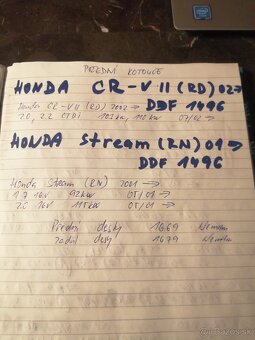 PŘEDNÍ KOTOUČE
HONDA CR-V II (RD) 02→
Honda CR-V II (RD) 2002→ DDF 1496
2.0, 2.2 CTDi 103kw, 110kw 07/02→
HONDA Stream (RN) 01→
DDF 1496
Honda Stream (RN) 2001→
1.7 16V 92kw 05/01→
2.0 16V 115kw 05/01→
Přední desky 1669
Zadní desy 1679
bazos.sk